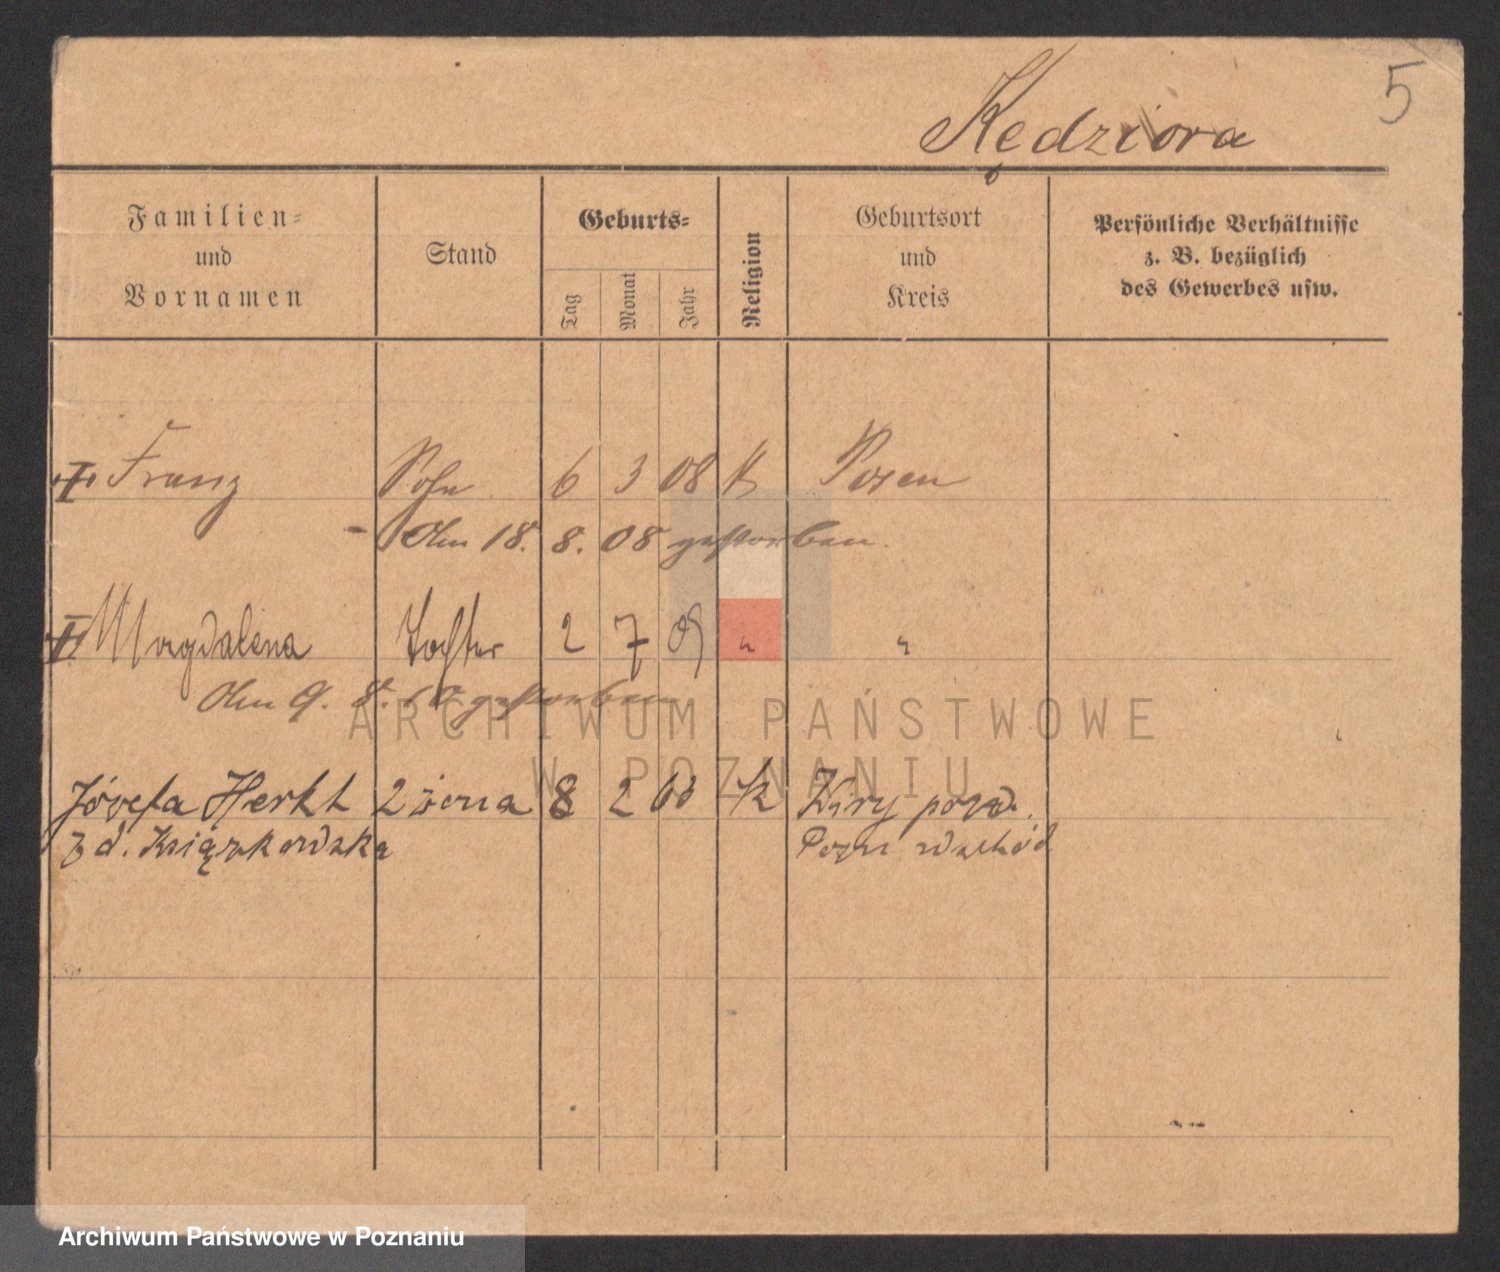 5
Kędziora
Familien-
und
Vornamen
Stand
Geburts-
Tag
Monat
Jahr
Religion
Geburtsort
und
Kreis
Persönliche Verhältnisse
z. B. bezüglich
des Gewerbes usw.
Franz Sohn 6 3 08 k Posen
Am 18. 8. 08 gestorben.
Magdalena Tochter 2 7 09 " "
Am 9. 8. 10 gestorben
Józefa Herkt 2 żona 8 2 k Wiry pozn.
z d. Książkowska
ARCHIWUM PAŃSTWOWE
W POZNANIU
Archiwum Państwowe w Poznaniu